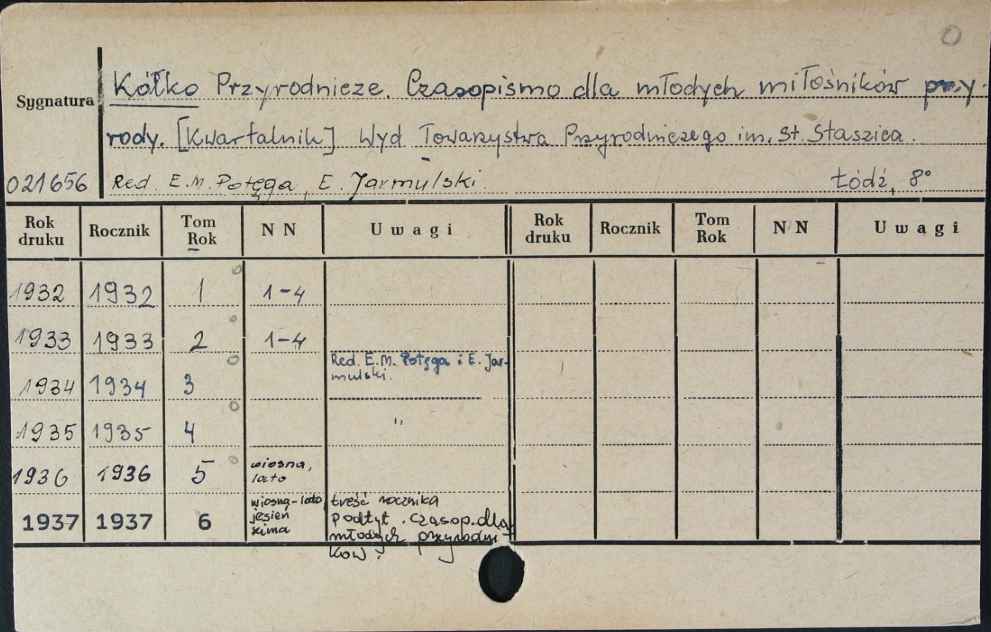 0
Kółko Przyrodnicze. Czasopismo dla młodych miłośników przy-
Sygnatura
rody. [Kwartalnik] Wyd Towarzystwa Przyrodniczego im. St. Staszica.
021656 Red. E.M. Potęga, E. Jarmulski. Łódź, 8°
Rok druku Rocznik Tom Rok N N Uwagi Rok druku Rocznik Tom Rok N N Uwagi
1932 1932 1 1-4
1933 1933 2 1-4
1934 1934 3 Red. E.M. Potęga i E. Jar-
mulski.
1935 1935 4 "
1936 1936 5 wiosna,
lato
1937 1937 6 wiosna-lato, treść rocznika
jesień podtyt. czasop. dla
zima młodych przyrodni-
ków.